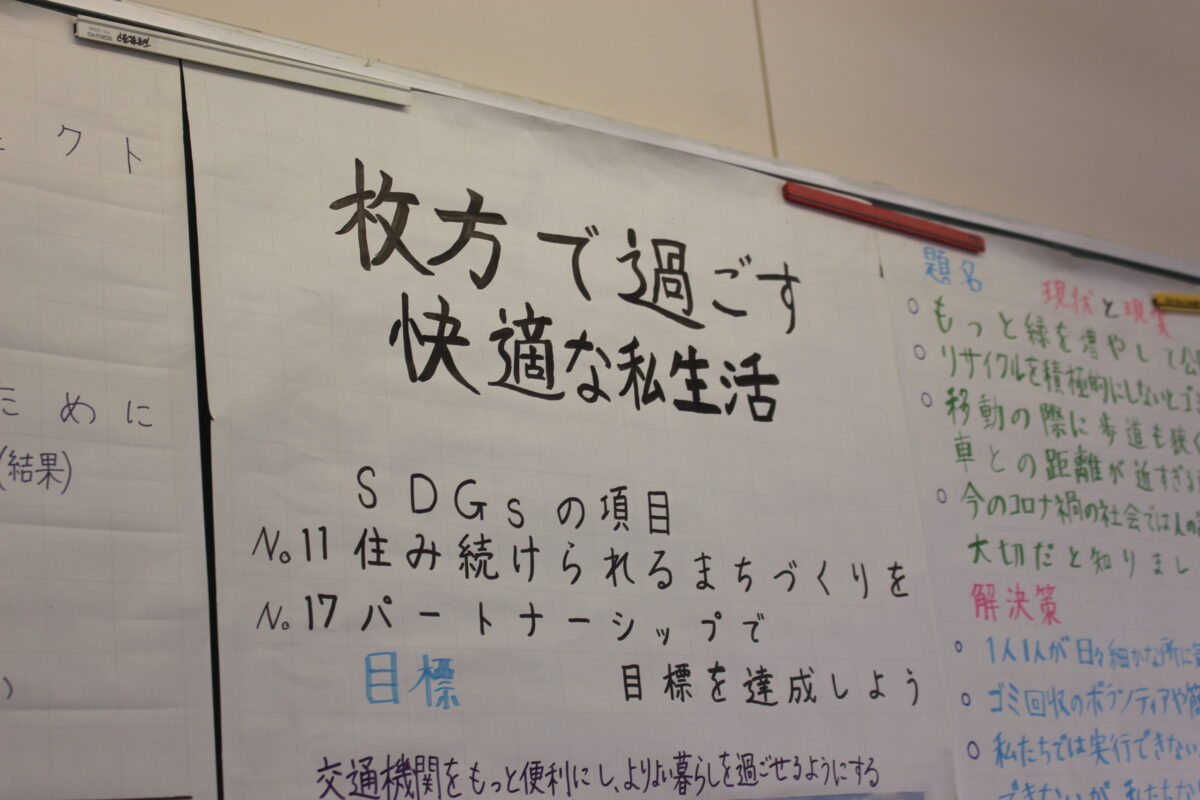 クト
ために
(結果)
KOKUYO
枚方で過ごす
快適な私生活
SDGsの項目
No.11 住み続けられるまちづくりを
No.17 パートナーシップで
目標を達成しよう
目標
交通機関をもっと便利にし、よりよい暮らしを過ごせるようにする
題名
現状と現実
もっと緑を増やして公
リサイクルを積極的にしないとゴミ
移動の際に歩道も狭く
車との距離が近すぎる
今のコロナ禍の社会では人の
大切だと知りまし
解決策
1人1人が日々細かな所に
ゴミ回収のボランティアや
私たちでは実行できない
できないが私たちな